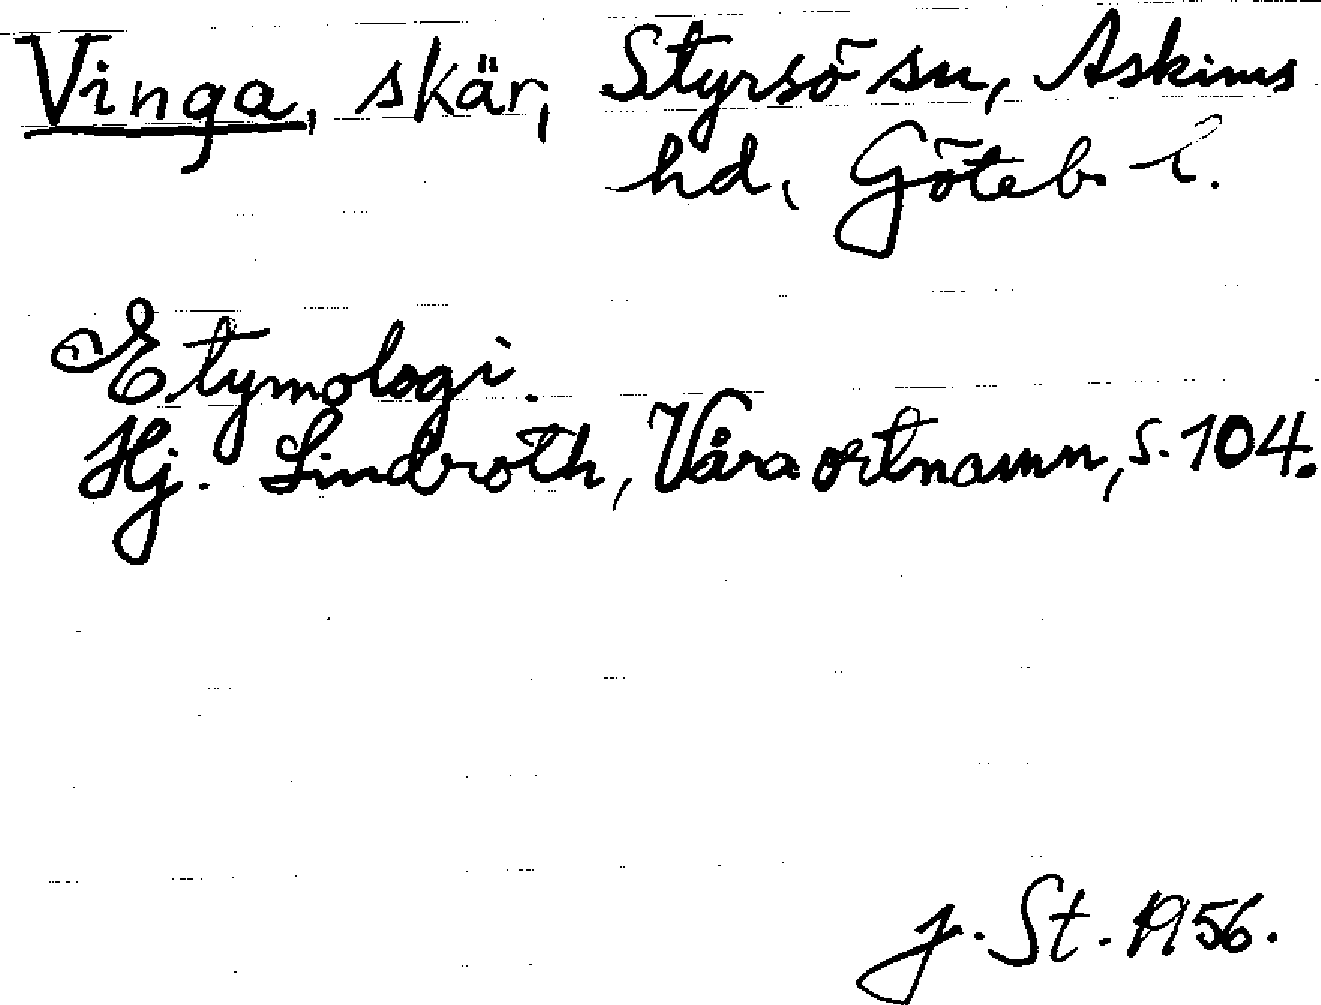 Vinga, skär, Styrsö sn, Askims
hd, Göteb. l.
Etymologi.
Hj. Lindroth, Våra ortnamn, s. 104.
J. St. 1956.